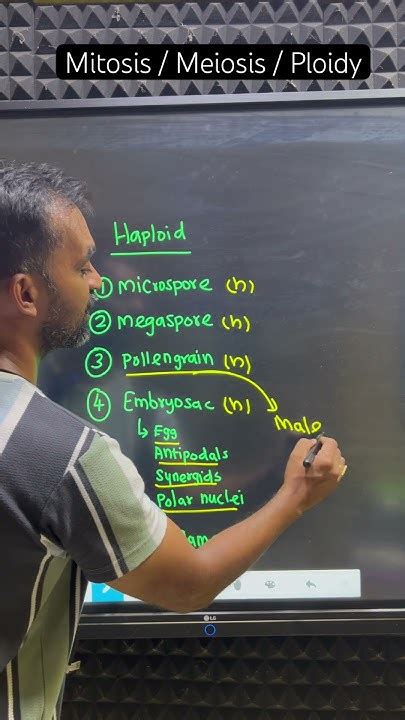 Mitosis / Meiosis / Ploidy
Haploid
① microspore (n)
② megaspore (n)
③ pollengrain (n)
④ Embryosac (n)
male
↳ Egg
Antipodals
Synergids
Polar nuclei
LG